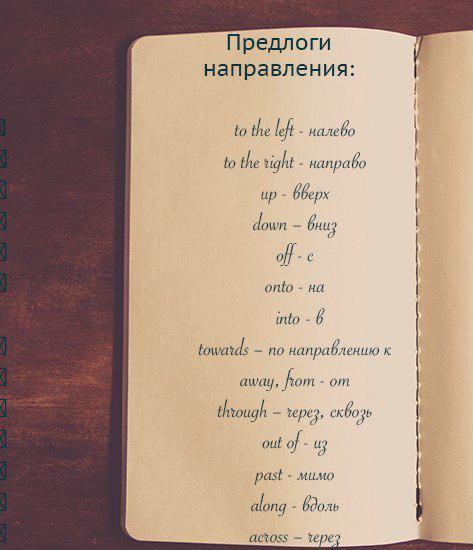 Предлоги
направления:
to the left - налево
to the right - направо
up - вверх
down – вниз
off - с
onto - на
into - в
towards – по направлению к
away, from - от
through – через, сквозь
out of - из
past - мимо
along - вдоль
across – через